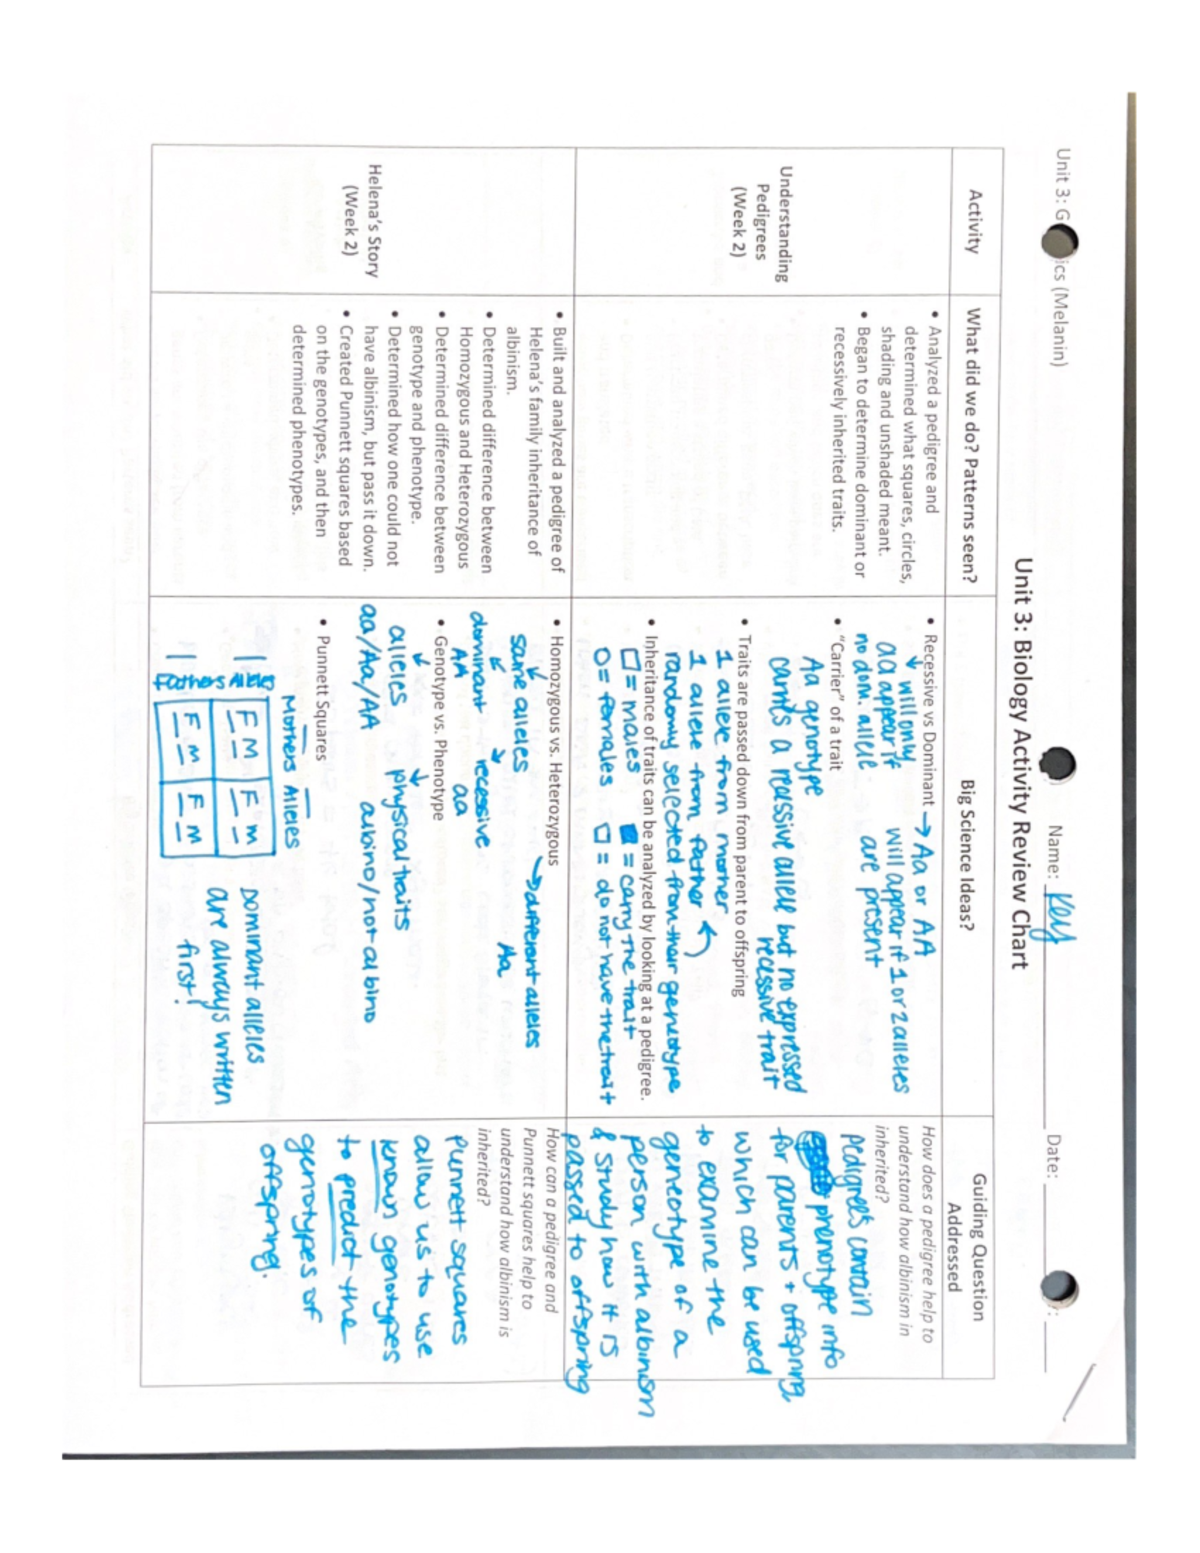 Unit 3: G ics (Melanin)
Name: Key
Date:
Unit 3: Biology Activity Review Chart
Activity
What did we do? Patterns seen?
Big Science Ideas?
Guiding Question
Addressed
Understanding
Pedigrees
(Week 2)
• Analyzed a pedigree and
determined what squares, circles,
shading and unshaded meant.
• Began to determine dominant or
recessively inherited traits.
• Recessive vs Dominant → Aa or AA
↓ will only
aa appear if
no dom. allele.
will appear if 1 or 2 alleles
are present
• "Carrier" of a trait
Aa genotype
carries a recessive allele but no expressed
recessive trait
• Traits are passed down from parent to offspring
1 allele from mother
1 allele from father
randomly selected from their genotype
• Inheritance of traits can be analyzed by looking at a pedigree.
□ = males ■ = carry the trait
O = females □ = do not have the trait
How does a pedigree help to
understand how albinism in
inherited?
pedigrees contain
phenotype info
for parents + offspring
which can be used
to examine the
geneotype of a
person with albinism
& study how it is
passed to offspring
Helena's Story
(Week 2)
• Built and analyzed a pedigree of
Helena's family inheritance of
albinism.
• Determined difference between
Homozygous and Heterozygous
• Determined difference between
genotype and phenotype.
• Determined how one could not
have albinism, but pass it down.
• Created Punnett squares based
on the genotypes, and then
determined phenotypes.
• Homozygous vs. Heterozygous
↓
same alleles
→ different alleles
Aa
dominant recessive
AA aa
• Genotype vs. Phenotype
↓ ↓
alleles physical traits
aa/Aa/AA albino/not albino
• Punnett Squares
Mothers Alleles
Fathers Alleles
F M F M
F M F M
Dominant alleles
are always written
first!
How can a pedigree and
Punnett squares help to
understand how albinism is
inherited?
punnett squares
allow us to use
known genotypes
to predict the
genotypes of
offspring.